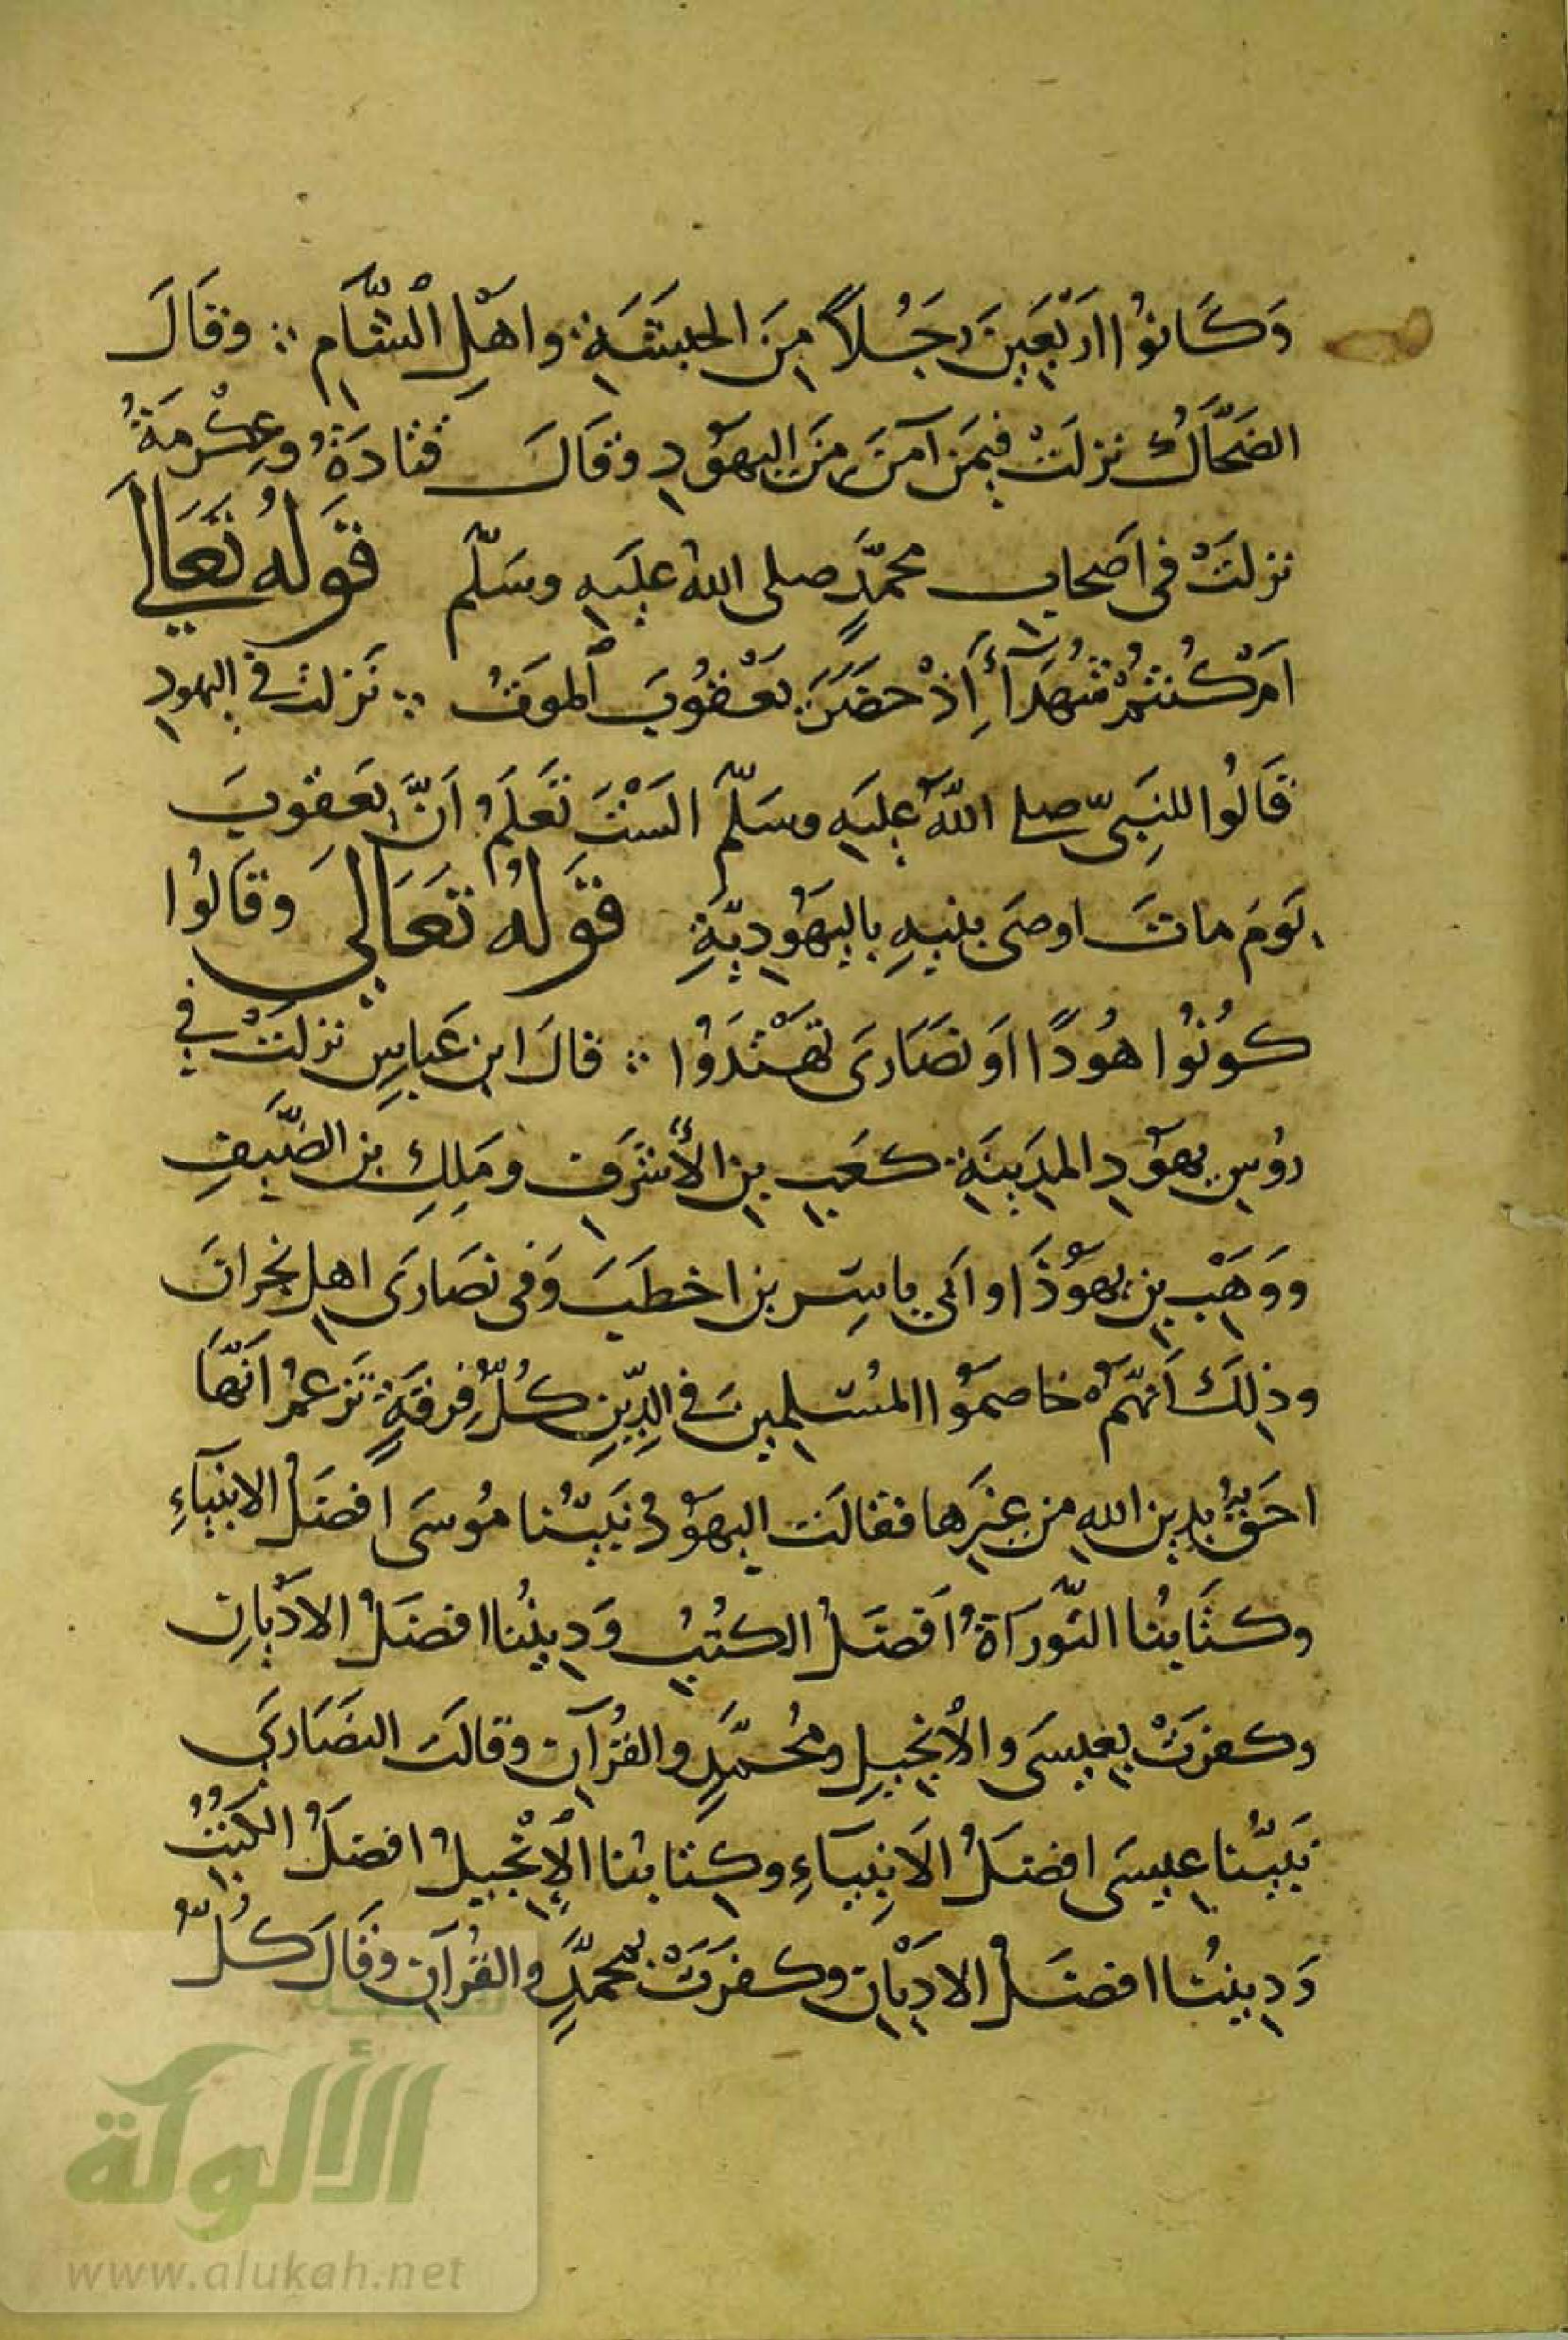 وَكَانُوا اَرْبَعَينَ رَجُلاً مِنَ الحبَشَةِ واهْلِ الشَّام ∴ وقَالَ
الضَحَّاكُ نزلَتْ فيمَن آمَنَ مِنَ اليهَودِ وقَالَ قتادَةُ وعِكْرمَةُ
نزلَتْ فى اَصحابِ محمَّدٍ صلى اللهُ علَيهِ وسَلَّم قَولهُ تَعَالَى
اَمْ كُنتُمْ شُهَدَآءَ اِذْ حضَرَ يَعْقُوبَ المَوتُ ∴ نَزلت فى اليهودِ
قَالُوا للنِبَىّ صلى اللهُ علَيهِ وسَلَّم السَتَ تَعلَمُ اَنَّ يعَقوبَ
يَومَ ماتَ اوصَى بنيهِ باليَهُوديَّةِ قَولهُ تعَالَى وَقَالُوا
كُونُوا هُودًا اَو نصَارَى تهْتَدُوا ∴ قالَ ابن عَباسٍ نزلَتْ فى
رؤُسِ يهَودِ المدَينَةِ كعَبِ بنِ الأشرَفِ ومَلِكِ بن الضَّيفِ
ووَهَبِ بنِ يهَوُذَا وابَى ياسِرِ بن اخطَبَ وَفى نصَارَى اهلِ نجرانَ
وذلِكَ اَنَّهمُ خاصمَوُا المُسلِمينَ فى الدِّينِ كُلُّ فِرقَةٍ تَزعمُ اَنَّهَا
احَقُّ بدينِ اللهِ من غيَرِها فقالَت اليهَودُ نَبيُّنا مُوسَى افضَلُ الانبيآءِ
وكتَابُنا التَّورَآةُ اَفضَلُ الكتُبِ وَدِينُنا افضَلُ الاَديانِ
وكفرَتْ بعيسَى والأنجيلِ ومُحمَّدٍ والقرُآنِ وقالَت النصَارَى
نَبيُّنا عيسَى افضَلُ الاَنِبيآءِ وكِتابُنا الإنْجيلُ افضَلُ الكتُبِ
وَدِينُنا افضَلُ الاديَانِ وكفرَتْ بمحمَّدٍ والقُرآنِ وقَالَ كُلُّ
شبكة
الألوكة
www.alukah.net